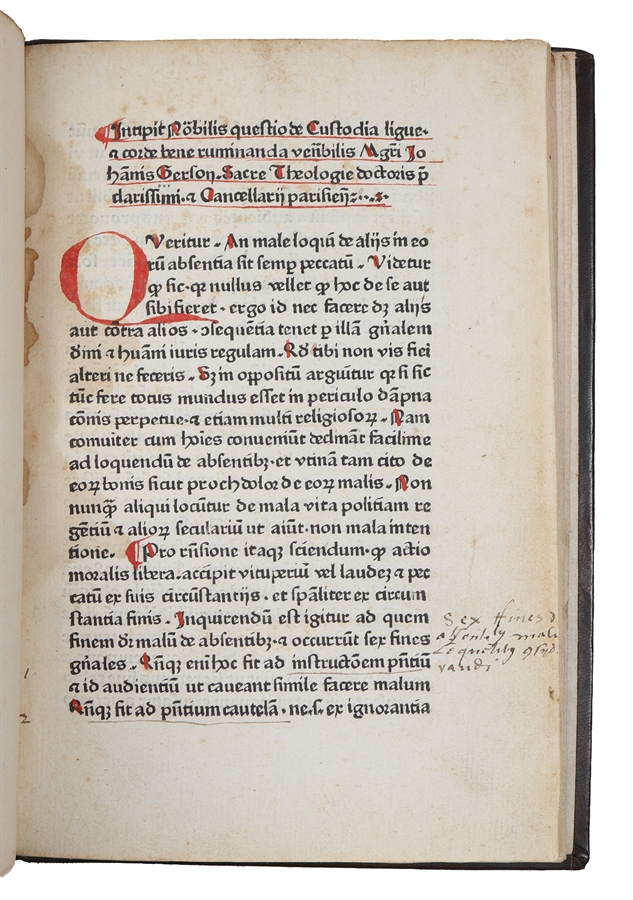 Incipit Nobilis questio de Custodia ligue·
⁊ corde bene ruminanda veñbilis Mgr̄i Jo
hãnis Gerson · Sacre Theologie doctoris p̄
clarissimi · ⁊ Cancellarij parisieñ
QVeritur · An male loqui de alijs in eo
rū absentia sit semp peccatū · Videtur
ꝙ sic · qꝛ nullus vellet ꝙ hoc de se aut
sibi fieret · ergo id nec facere dꝫ alijs
aut cōtra alios · ↄsequētia tenet ꝑ illā gñalem
diui ⁊ huāni iuris regulam · Qd tibi non vis fieri
alteri ne feceris · Sꝫ in oppositū arguitur qꝛ si sic
tūc fere totus mundus esset in periculo dāpna
cōnis perpetue · ⁊ etiam multi religiosoꝝ · Nam
comuiter cum hoīes conueniūt declināt facilime
ad loquendū de absentibꝫ · et vtinā tam cito de
eoꝝ bonis sicut proch dolor de eoꝝ malis · Non
nunqꝫ aliqui locūtur de mala vita politiam re
gētiū ⁊ alioꝝ seculariū ut aiūt · non mala inten
tione · Pro rñsione itaqꝫ sciendum · ꝙ actio
moralis libera · accipit vituperiū vel laudeꝫ ⁊ pec
catū ex suis circūstantijs · et spāliter ex circum
stantia finis · Inquirendū est igitur ad quem
finem dr̄ malū de absentibꝫ · ⁊ occurrūt sex fines
gñales · Qñqꝫ eni hoc fit ad instructōem pñtiū
⁊ id audientiū ut caueant simile facere malum
Qñqꝫ fit ad pñtium cautelā · ne · s · ex ignorantia
Sex fines d
absentibꝫ male
loquentibꝫ
randi
1
2